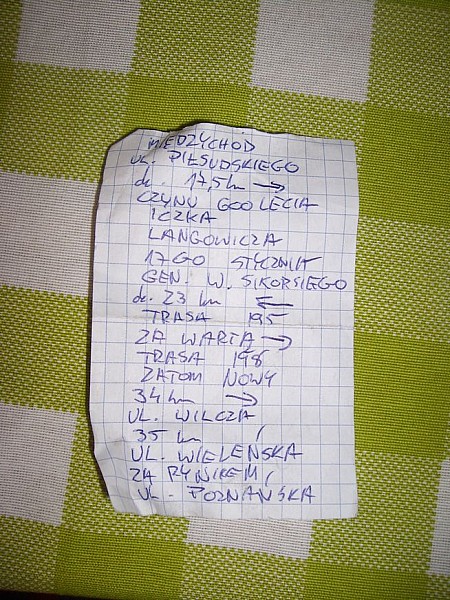 MIEDZYCHOD
UL. PIŁSUDSKIEGO
do. 17,5 km →
CZYNU 600 LECIA
ICZKA
LANGOWICZA
17GO STYCZNIA
GEN. W. SIKORSIEGO
do. 23 km ←
TRASA 195
ZA WARTĄ →
TRASA 198
ZATOM NOWY
34 km →
UL. WILCZA
35 km /
UL. WIELEŃSKA
ZA RYNIKEM /
UL. POZNAŃSKA